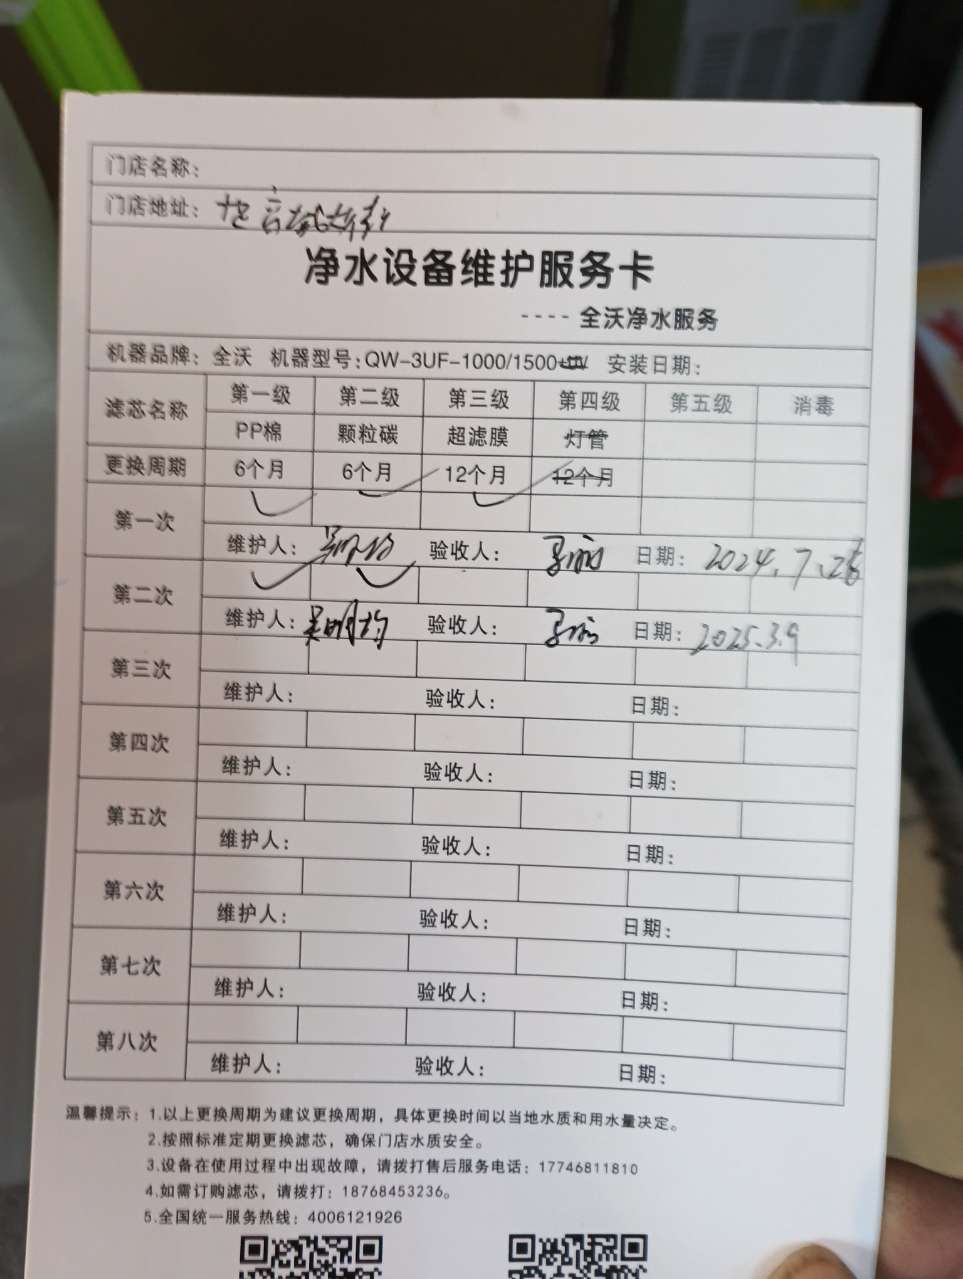 门店名称：
门店地址：
净水设备维护服务卡
---- 全沃净水服务
机器品牌：全沃 机器型号：QW-3UF-1000/1500 安装日期：
滤芯名称 第一级 第二级 第三级 第四级 第五级 消毒
PP棉 颗粒碳 超滤膜 灯管
更换周期 6个月 6个月 12个月 12个月
第一次
维护人： 验收人： 日期：2024.7.
第二次
维护人：吴明均 验收人： 日期：2025.3.9
第三次
维护人： 验收人： 日期：
第四次
维护人： 验收人： 日期：
第五次
维护人： 验收人： 日期：
第六次
维护人： 验收人： 日期：
第七次
维护人： 验收人： 日期：
第八次
维护人： 验收人： 日期：
温馨提示：1.以上更换周期为建议更换周期，具体更换时间以当地水质和用水量决定。
2.按照标准定期更换滤芯，确保门店水质安全。
3.设备在使用过程中出现故障，请拨打售后服务电话：17746811810
4.如需订购滤芯，请拨打：18768453236。
5.全国统一服务热线：4006121926